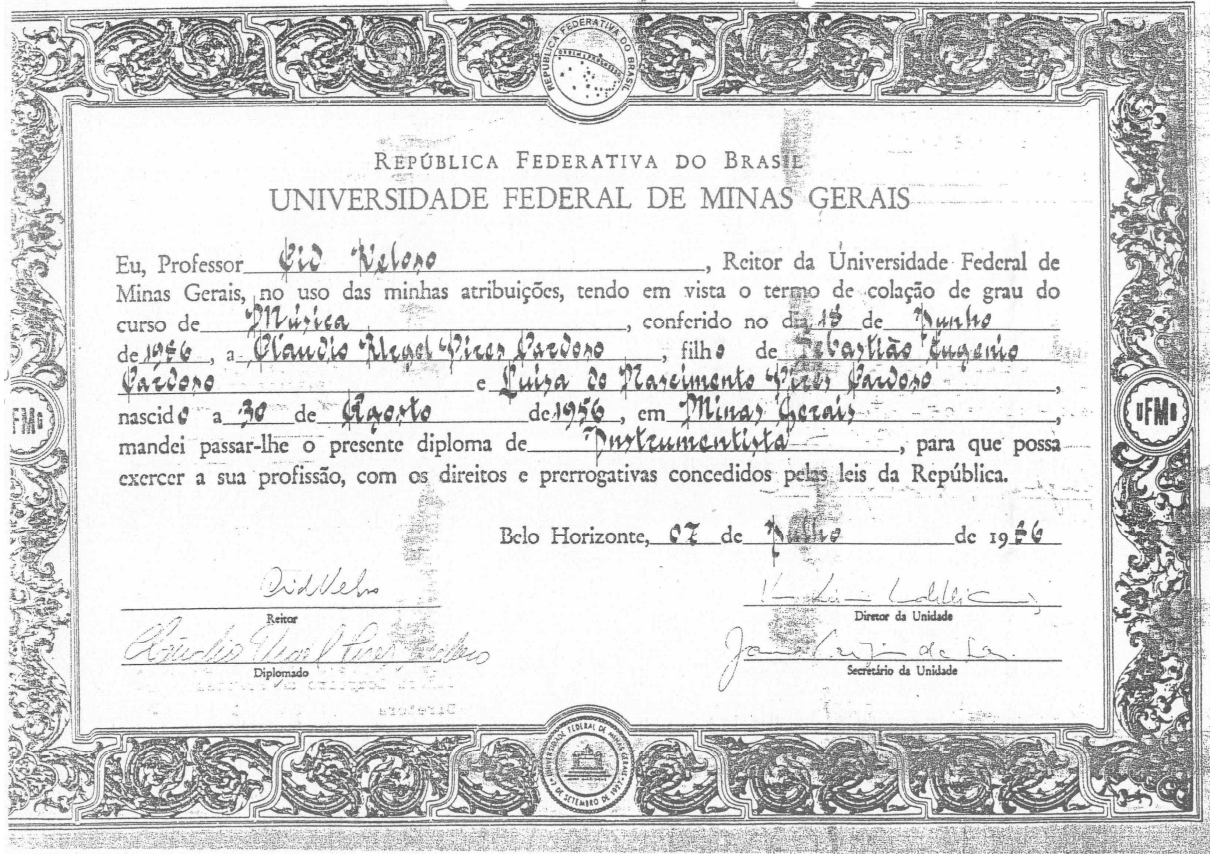 REPÚBLICA FEDERATIVA DO BRASIL
REPÚBLICA FEDERATIVA DO BRASIL
UNIVERSIDADE FEDERAL DE MINAS GERAIS
Eu, Professor Cid Veloso, Reitor da Universidade Federal de
Minas Gerais, no uso das minhas atribuições, tendo em vista o termo de colação de grau do
curso de Música, conferido no dia de Junho
de 1986, a Claudio Urgel Pires Cardoso, filho de Sebastião Eugenio
Cardoso e Luiza do Nascimento Pires Cardoso,
nascido a 30 de Agosto de 1956, em Minas Gerais,
mandei passar-lhe o presente diploma de Instrumentista, para que possa
exercer a sua profissão, com os direitos e prerrogativas concedidos pelas leis da República.
UFMG
UFMG
Belo Horizonte, 07 de Julho de 1986
Cid Veloso
Reitor
Diretor da Unidade
Claudio Urgel Pires Cardoso
Diplomado
Secretário da Unidade
UNIVERSIDADE FEDERAL DE MINAS GERAIS
7 DE SETEMBRO DE 1927